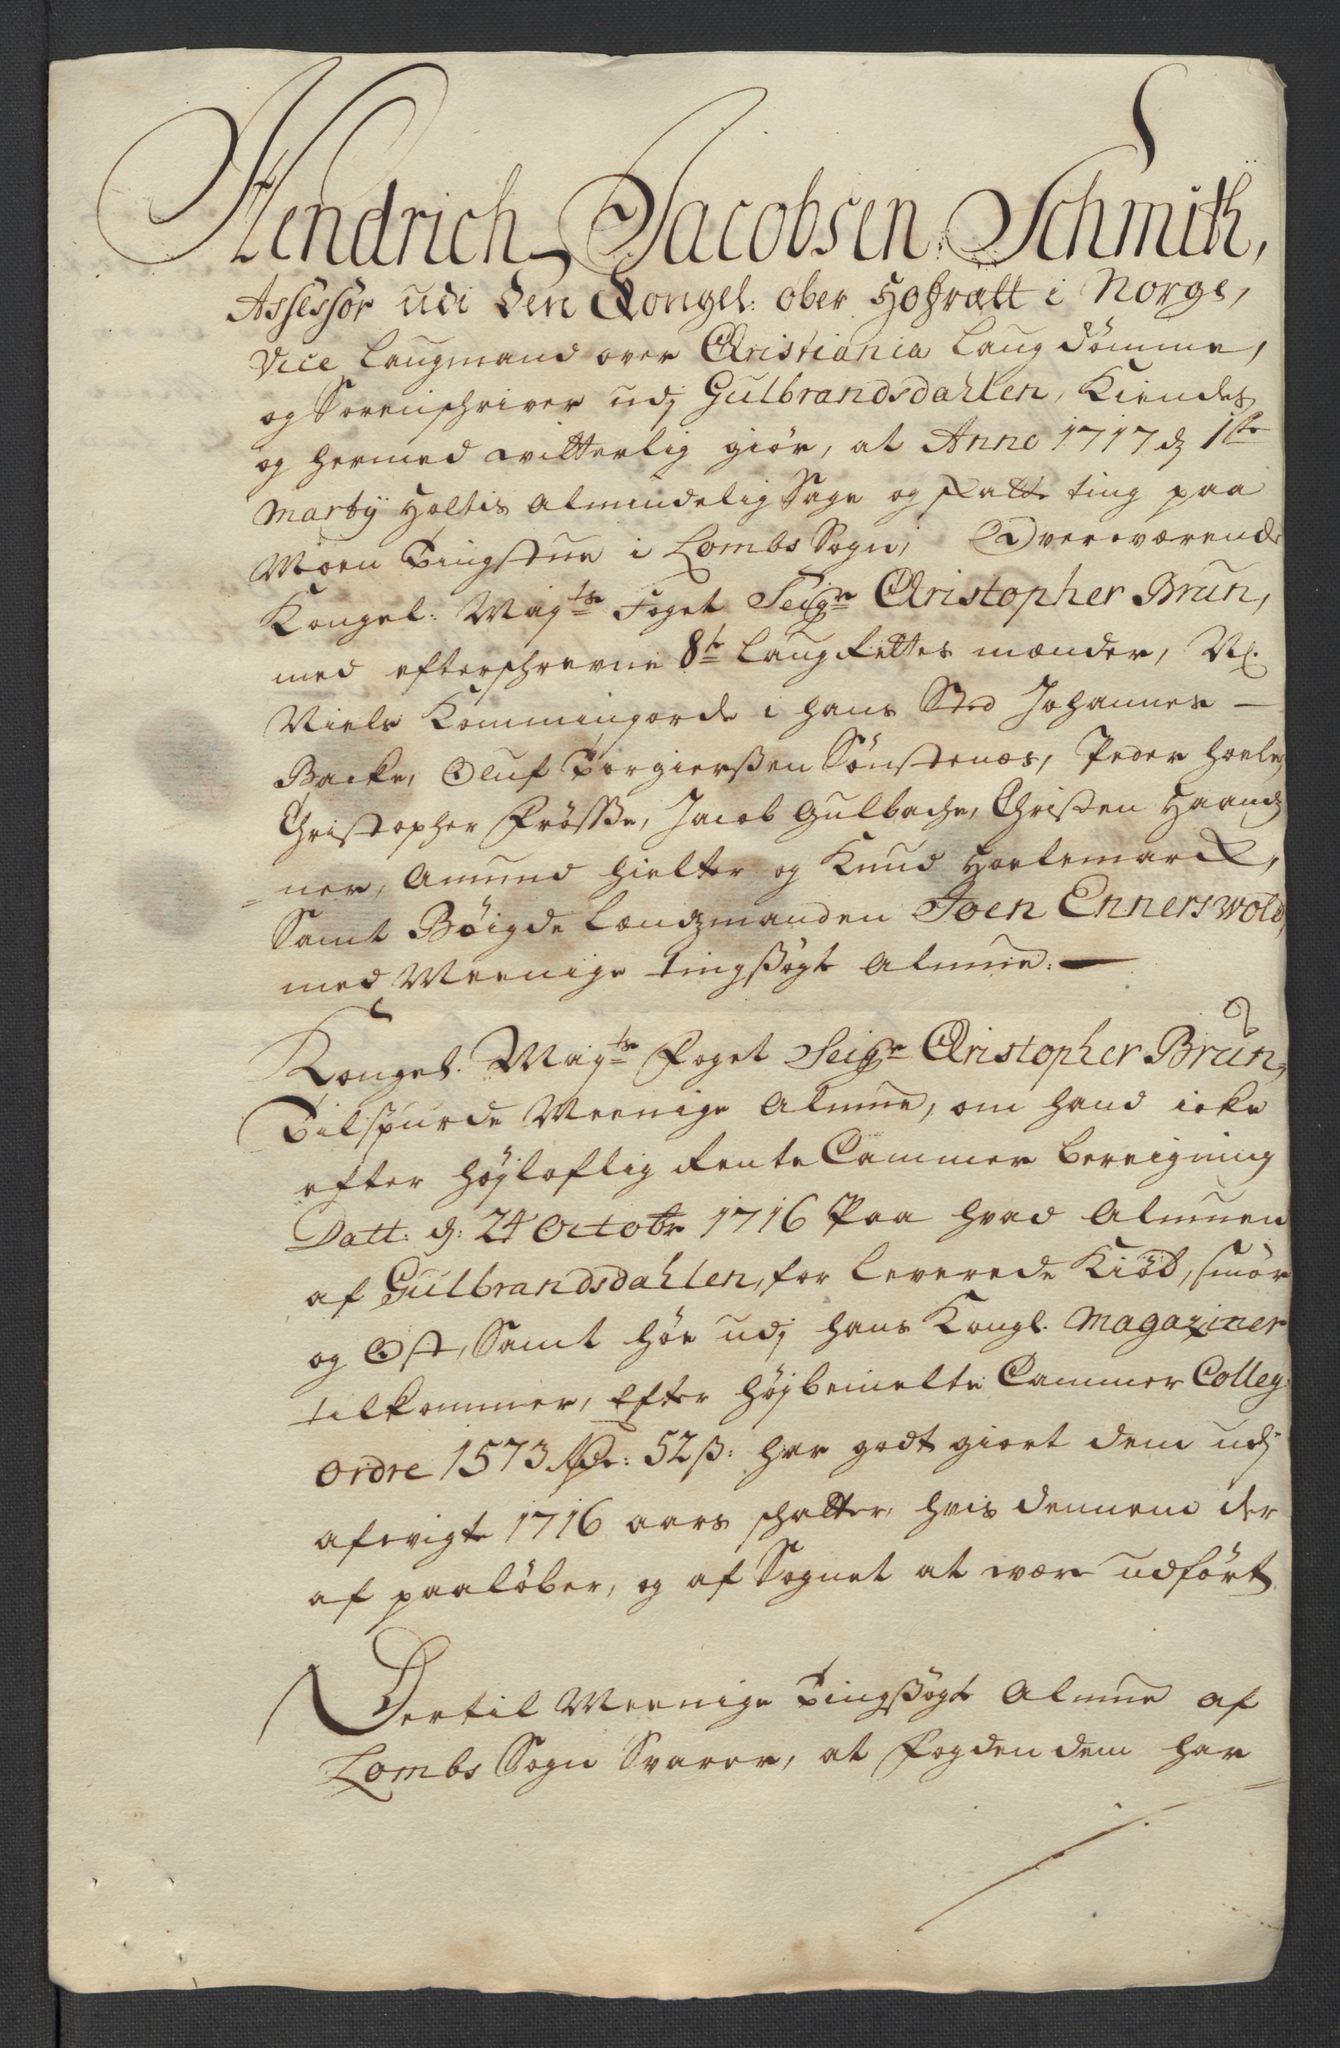 Hendrich Jacobsen Schmith,
Assessor udi den Kongel: ober Hofrætt i Norge,
Vice Laugmand over Christiania Laugdømme,
og Sorenschriver udj Gulbrandsdahlen, Kiendes
og hermed witterlig giør, at Anno 1717 d 1ste
Marty Holtis Almindelig Sage og skatte ting paa
Moen Tingstue i Lombs Sogn, Overværende
Kongel: Mayts Foget Seigr Christopher Brun,
med efterschrevne 8te Laug Rettes mænder, Nl.
Niels Kommingorde i hans Sted Johannes —
Backe, Oluf Torgierßen Sønstenæs, Peder Hoele,
Christopher Frøsße, Jacob Gulbache, Christen Haand=
=ner, Amund Hielter og Knud Hoelemarck,
Samt Bøigde Lændzmanden Joen Enners wold,
med Meenige tingsøgte Almue. —
Kongel. Mayts Foget Seigr Christopher Brun,
Tilspurde Meenige Almue, om hand icke
efter Højloflig Rente Cammer beregning
Datt: d: 24 Octobr 1716 Paa hvad Almuen
af Gulbrandsdahlen, for leverede Kiød, smør
og Ost, Samt høe udj hans Kongl. Magaziner
tilkommer, Efter Højbemelte Cammer Colleg:
Ordre 1573 Rdr: 52 ß: har godt giort dem udj
afvigte 1716 aars schatter, hvis dennem der
af paaløber, og af Sognet at være udført
Dertil Meenige Tingsøgte Almue af
Lombs Sogn Svarer, at Fogden dem har